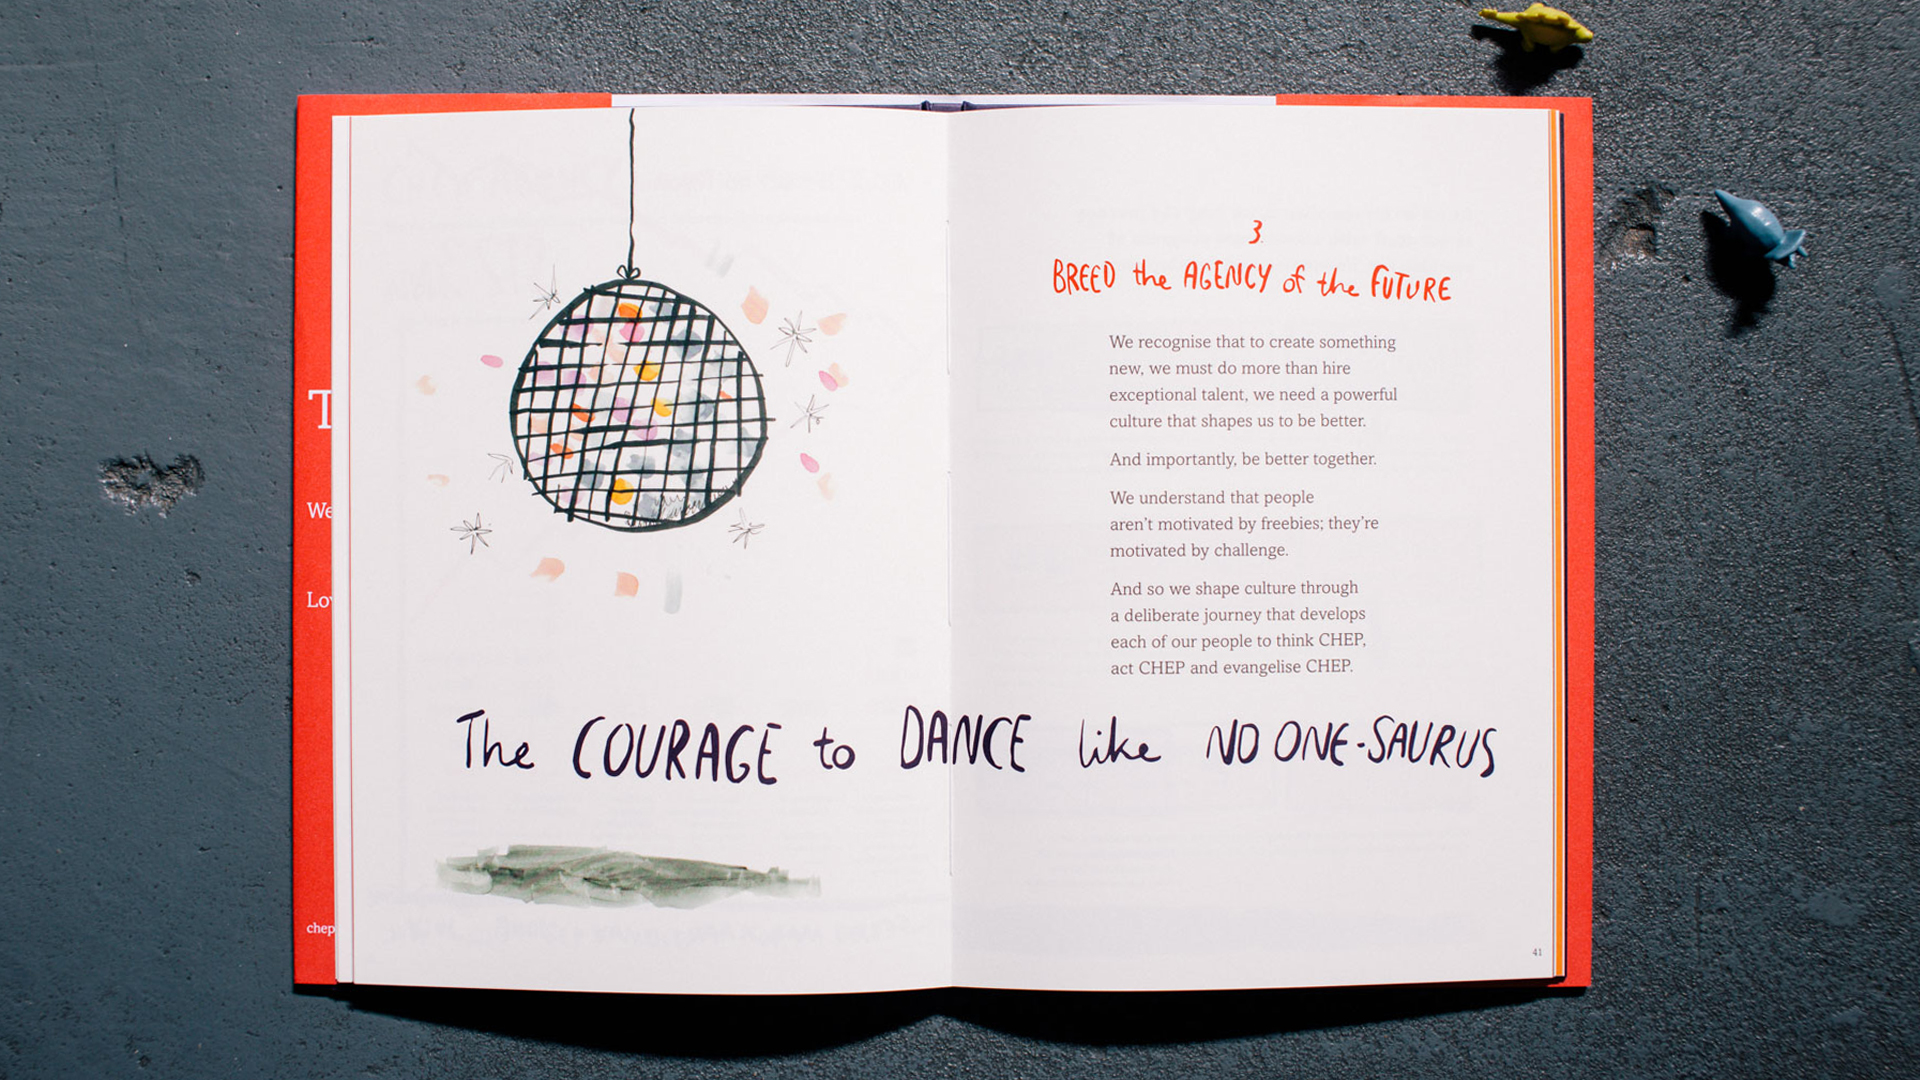 3.
BREED the AGENCY of the FUTURE
We recognise that to create something
new, we must do more than hire
exceptional talent, we need a powerful
culture that shapes us to be better.
And importantly, be better together.
We understand that people
aren't motivated by freebies; they're
motivated by challenge.
And so we shape culture through
a deliberate journey that develops
each of our people to think CHEP,
act CHEP and evangelise CHEP.
The COURAGE to DANCE like NO ONE-SAURUS
41
T
We
Lov
chep